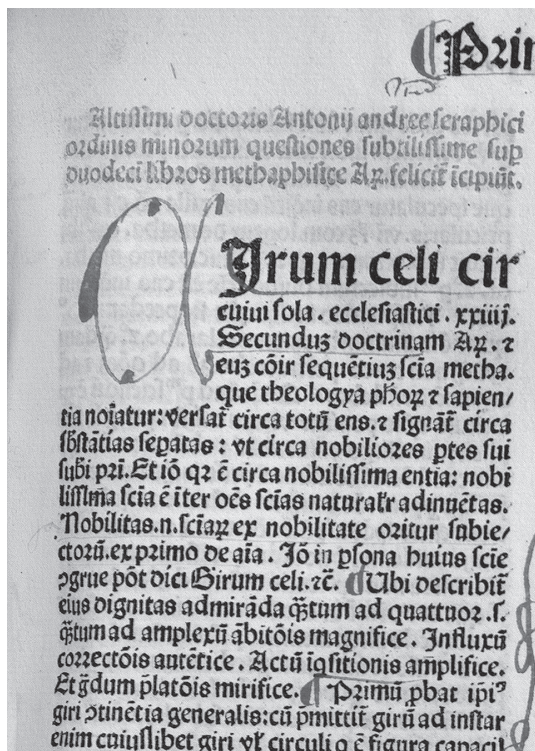 Prim
Altissimi doctoris Antonij andree seraphici
ordinis minorum questiones subtilissime suꝑ
duodeci libros methaphisice Aꝝ. felicit̄ īcipiūt.
Girum celi cir
cuiui sola. ecclesiastici. xxiiij.
Secunduꝫ doctrinam Aꝝ. ⁊
eiꝰ cōir sequētiuꝫ scīa metha.
que theologya pħoꝝ ⁊ sapien/
tia noīatur: versat̄ circa totū ens. ⁊ signāt̄ circa
sb̄stātias seꝑatas: vt circa nobiliores ꝑtes sui
subī pri. Et iō qꝛ ē circa nobilissima entia: nobi
lissīma scīa ē īter oēs scīas natural̄r adinuētas.
Nobilitas .n. scīaꝝ ex nobilitate oritur subie/
ctoꝝū. ex primo de aīa. Jō in ꝑsona huius scīe
ꝯgrue pōt dici Girum celi. ⁊c̄. Ubi describit̄
eius dignitas admirāda q̄ꝫtum ad quattuor .s.
q̄ꝫtum ad amplexū ābitōis magnifice. Influxū
correctōis autētice. Actū īqsitionis amplifice.
Et ḡdum p̄latōis mirifice. Primū ꝓbat ipīꝰ
giri ꝯtinētia generalis: cū p̄mittit̄ girū ad instar
enim cuiuslibet giri vl̄ circuli q ē figura capacil